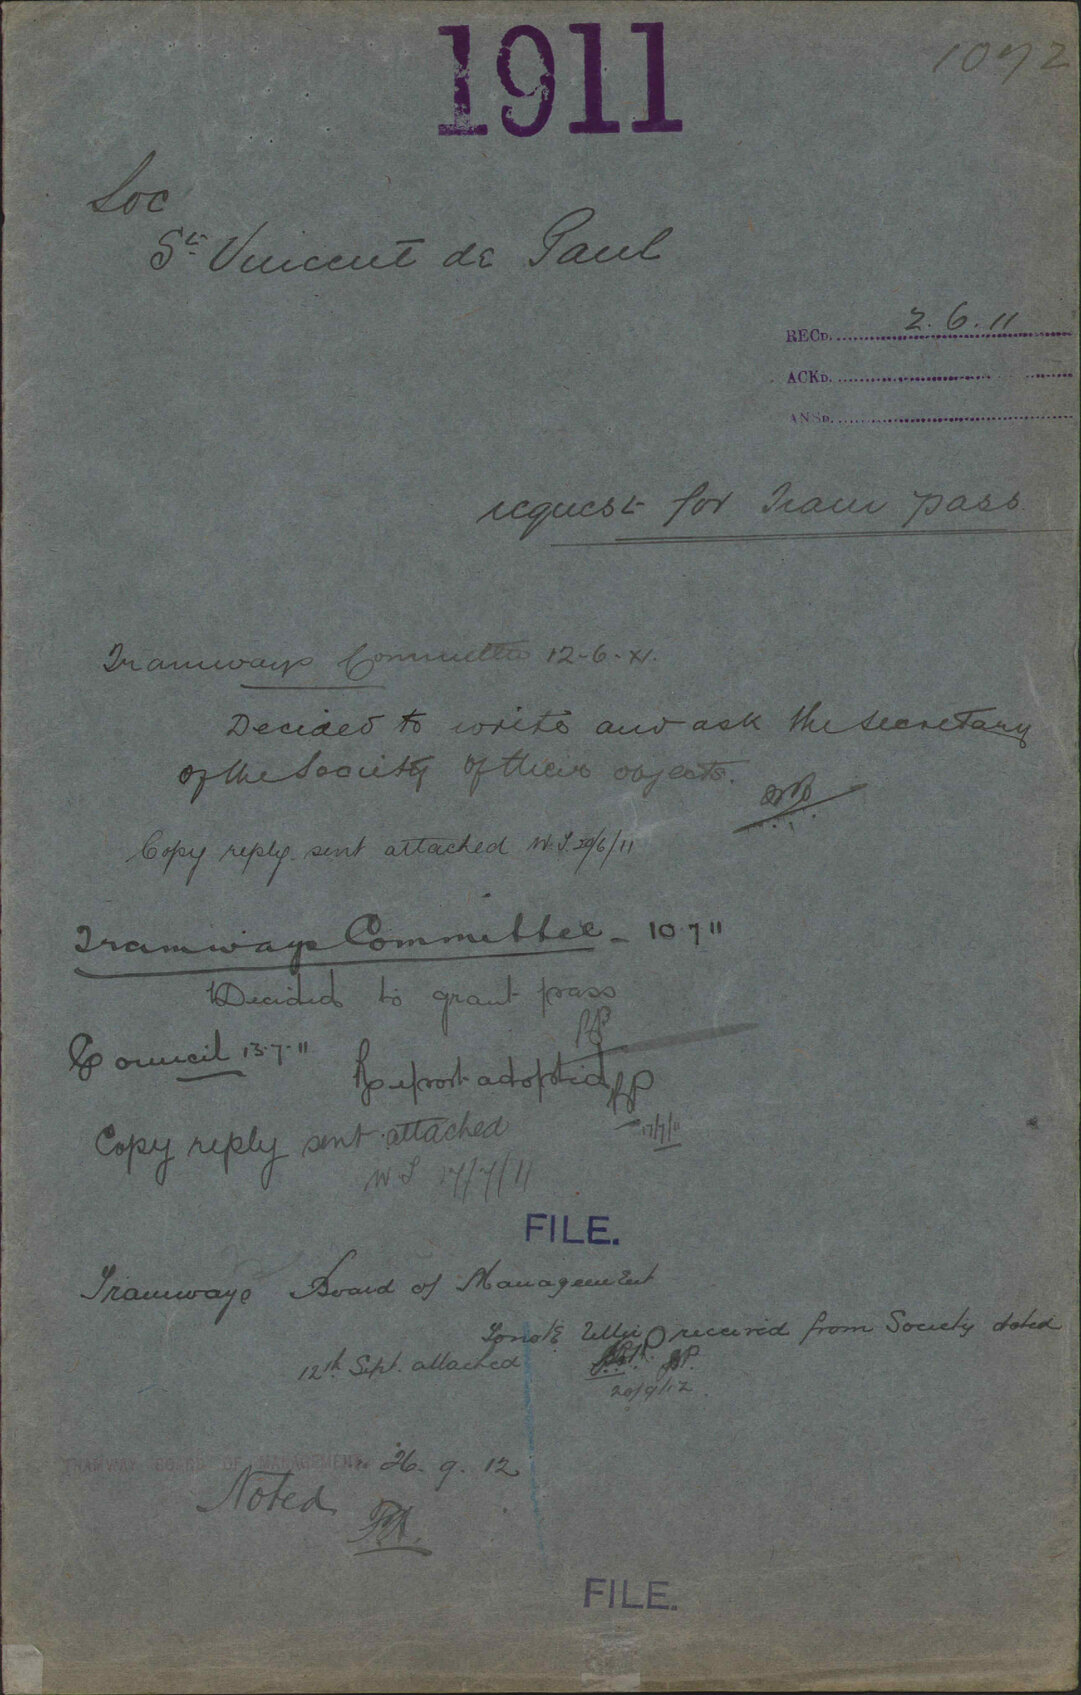 1911
1072
Soc
St Vincent de Paul
RECD. 2.6.11
ACKD.
ANSD.
request for Tram pass
Tramways Committee 12-6-XI.
Decided to write and ask the Secretary
of the Society of their objects.
Copy reply sent attached W.S. 29/6/11
Tramways Committee - 10.7 11
Decided to grant pass
Council 13.7.11
Report adopted
17/7/11
Copy reply sent attached
W S 17/7/11
FILE.
Tramways Board of Management
To note letter received from Society dated
12th Sept. attached
20/9/12
TRAMWAY BOARD OF MANAGEMENT. 26. 9. 12
Noted
FILE.